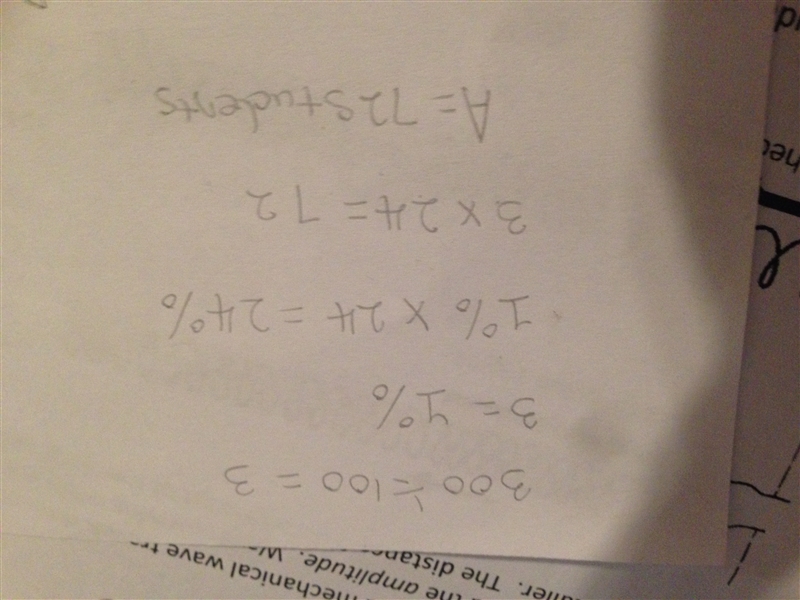 300 ÷ 100 = 3
3 = 1%
1% × 24 = 24%
3 × 24 = 72
A = 72 students
mechanical wave
the amplitude. We
aller. The distance